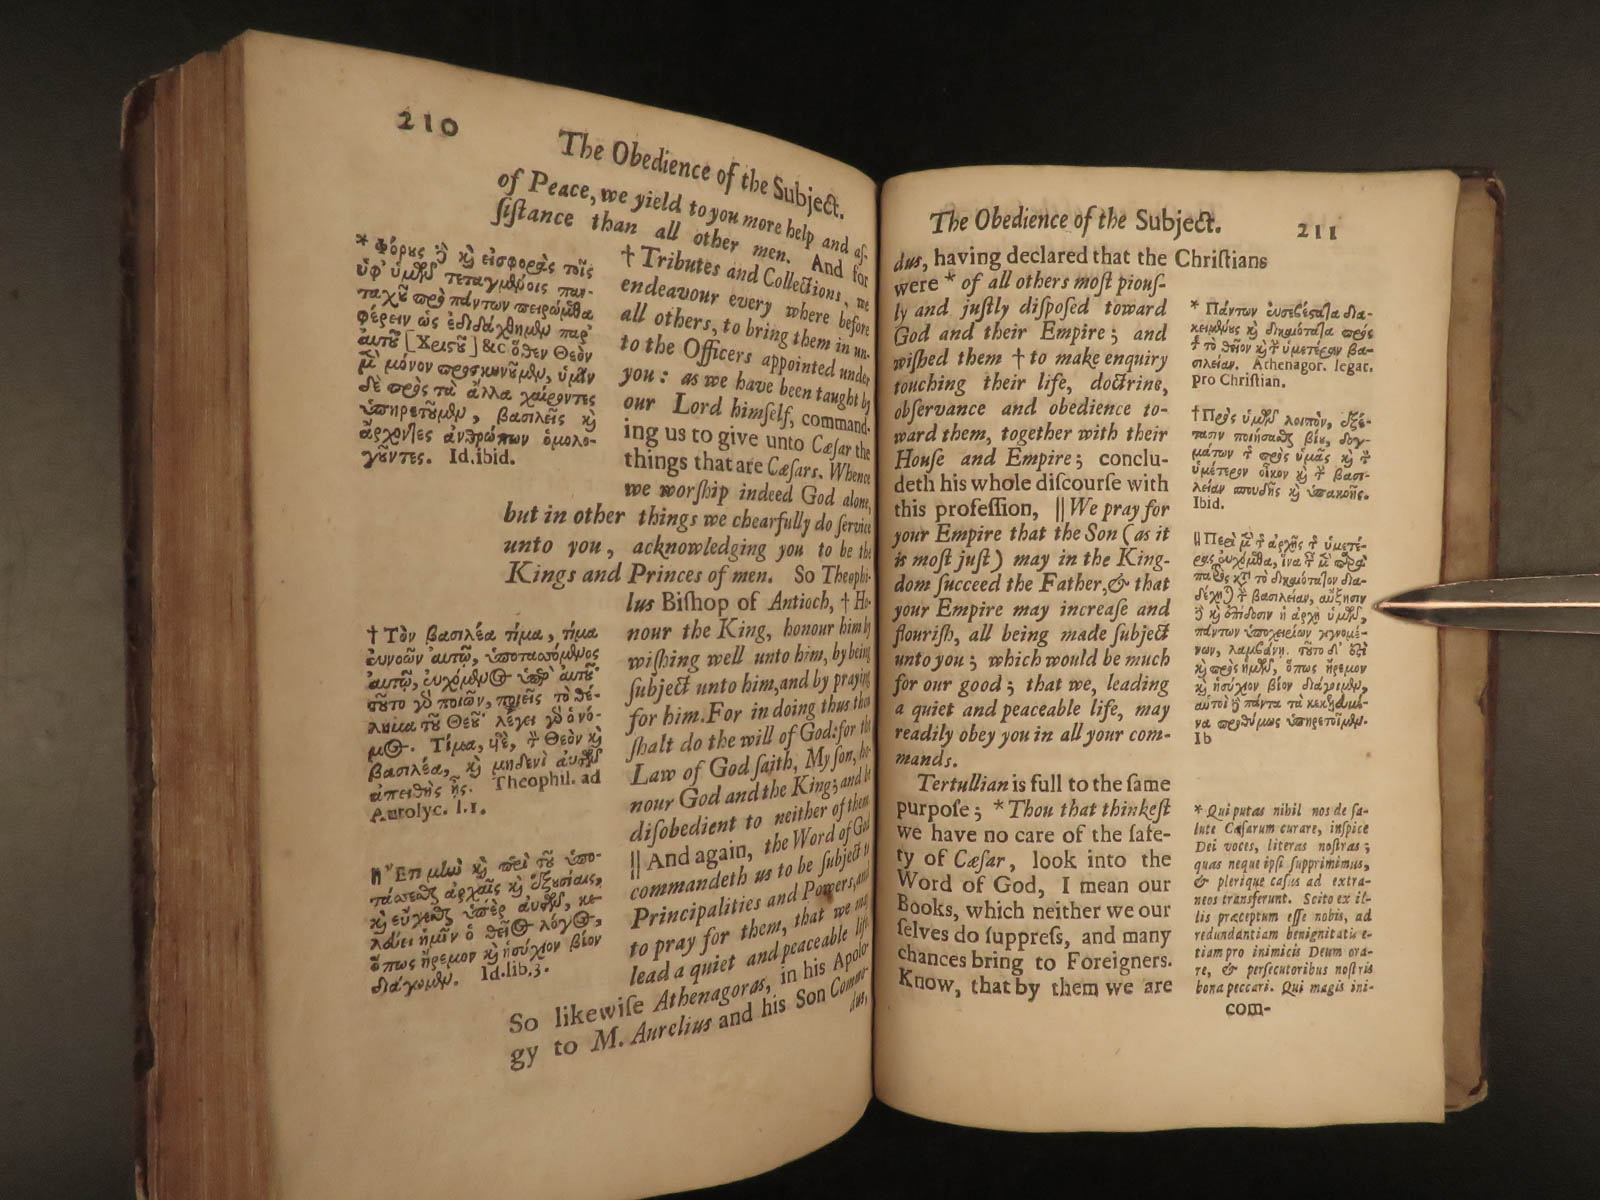 210
The Obedience of the Subject.
of Peace, we yield to you more help and aſ-
ſiſtance than all other men. And for
† Tributes and Collections, we
endeavour every where before
all others, to bring them in un-
to the Officers appointed under
you: as we have been taught by
our Lord himſelf, command-
ing us to give unto Cæſar the
things that are Cæſars. Whence
we worſhip indeed God alone,
but in other things we chearfully do ſervice
unto you, acknowledging you to be the
Kings and Princes of men. So Theophi-
lus Biſhop of Antioch, † Ho-
nour the King, honour him by
wiſhing well unto him, by being
ſubject unto him, and by praying
for him. For in doing thus thou
ſhalt do the will of God: for the
Law of God ſaith, My ſon, ho-
nour God and the King; and be
diſobedient to neither of them.
|| And again, the Word of God
commandeth us to be ſubject to
Principalities and Powers, and
to pray for them, that we may
lead a quiet and peaceable life.
So likewiſe Athenagoras, in his Apolo-
gy to M. Aurelius and his Son Commo-
dus,
* Φόρȣς ϗ εἰσφορὰς τοῖς
ταχῦ πρὸ πάντων πειρώμεθα
φέρειν ὡς ἐδιδάχθημεν παρ'
αὐτοῦ [Χριϛοῦ] &c ὅθεν Θεὸν
μόνον προσκυνοῦμεν, ὑμῖν
δὲ πρὸς τὰ ἄλλα χαίροντες
ὑπηρετοῦμεν, βασιλεῖς ϗ
ἄρχοντες ἀνθρώπων ὁμολο-
γοῦντες. Id. ibid.
† Τὸν βασιλέα τίμα, τίμα
εὐνοῶν αὐτῷ, ὑποτασσόμενος
αὐτῷ, εὐχόμενος ὑπὲρ αὐτοῦ
τοῦτο γὸ ποιῶν, ποιεῖς τὸ θέ-
λημα τοῦ Θεοῦ· λέγει γὸ ὁ νό-
μος. Τίμα, υἱὲ, Θεὸν ϗ
βασιλέα, ϗ μηδενὶ αὐτῶν
ἀπειθὴς ᾖς. Theophil. ad
Autolyc. l. 1.
|| Ἔτι μὴν ϗ περὶ τοῦ ὑπο-
τάσσεσθαι ἀρχαῖς ϗ ἐξουσίαις,
ϗ εὔχεσθαι ὑπὲρ αὐτῶν, κε-
λεύει ἡμῖν ὁ θεῖος λόγος,
ὅπως ἤρεμον ϗ ἡσύχιον βίον
διάγωμεν. Id. lib. 3.
The Obedience of the Subject.
211
dus, having declared that the Chriſtians
were * of all others moſt piouſ-
ly and juſtly diſpoſed toward
God and their Empire; and
wiſhed them † to make enquiry
touching their life, doctrine,
obſervance and obedience to-
ward them, together with their
Houſe and Empire; conclu-
deth his whole diſcourſe with
this profeſſion, || We pray for
your Empire that the Son (as it
is moſt juſt) may in the King-
dom ſucceed the Father, & that
your Empire may increaſe and
flouriſh, all being made ſubject
unto you; which would be much
for our good; that we, leading
a quiet and peaceable life, may
readily obey you in all your com-
mands.
Tertullian is full to the ſame
purpoſe; * Thou that thinkeſt
we have no care of the ſafe-
ty of Cæſar, look into the
Word of God, I mean our
Books, which neither we our
ſelves do ſuppreſs, and many
chances bring to Foreigners.
Know, that by them we are
* Πάντων εὐσεβέστατα δια-
κειμένους ϗ δικαιότατα πρός
τὸ θεῖον ϗ ὑμετέραν βα-
σιλείαν. Athenagor. legat.
pro Chriſtian.
† Πρὸς ὑμῶν λοιπὸν, ἐξέ-
τασιν ποιήσασθαι βίου, δογ-
μάτων πρὸς ὑμᾶς ϗ
ὑμέτερον οἶκον ϗ βασι-
λείαν σπουδῆς ϗ ὑπακοῆς.
Ibid.
|| Περὶ ἀρχῆς ὑμετέ-
ρας εὐχόμεθα, ἵνα παῖς
τὸ δικαιότατον δια-
δέχησθε βασιλείαν, αὔξησιν
ϗ ἐπίδοσιν ἡ ἀρχὴ ὑμῶν,
πάντων ὑποχειρίων γιγνομέ-
νων, λαμβάνῃ. τοῦτο δ'
ϗ πρὸς ἡμῶν, ὅπως ἤρεμον
ϗ ἡσύχιον βίον διάγοιμεν,
αὐτοὶ πάντα τὰ κεκελευσμέ-
να προθύμως ὑπηρετοῖμεν.
Ib
* Qui putas nihil nos de ſa-
lute Cæſarum curare, inſpice
Dei voces, literas noſtras;
quas neque ipſi ſupprimimus,
& plerique caſus ad extra-
neos transferunt. Scito ex il-
lis præceptum eſſe nobis, ad
redundantiam benignitatis e-
tiam pro inimicis Deum ora-
re, & perſecutoribus noſtris
bona peccari. Qui magis ini-
com-